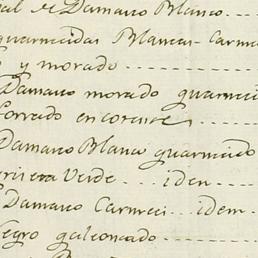 al de Damasco Blanco
guarnecidas Blancas Carmeci
o y morado
Damasco morado guarneci
forrado en
Damasco Blanco guarnecido
Verde iden
Damasco Carmeci idem
Negro galoneado